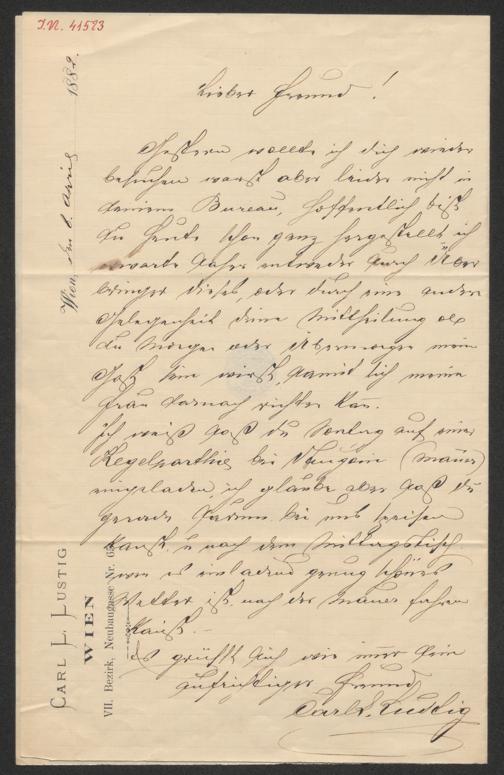 I.N. 41523
CARL L. LUSTIG
WIEN
VII. Bezirk, Neubaugasse Nr. 65
Wien, den 6. April 1882.
Lieber Freund!
Gestern wollte ich dich wieder
besuchen warst aber leider nicht in
deinem Bureau, hoffentlich bist
du heute schon ganz hergestellt ich
erwarte daher entweder durch Über
bringer dieses, oder durch eine andere
Gelegenheit deine Mittheilung ob
du Morgen oder Übermorgen mein
Gast sein wirst, damit sich meine
Frau darnach richten kan.
Ich weiß daß du Sontag auf einer
Kegelparthie bei (Mauer)
eingeladen, ich glaube aber daß du
gerade darum bei uns speisen
kanst u nach dem Mittagstisch
wen es einladend genug schönes
Wetter ist, nach der Mauer fahren
kanst. –
Es grüßt dich wie imer dein
aufrichtiger Freund
Carl L. Lustig